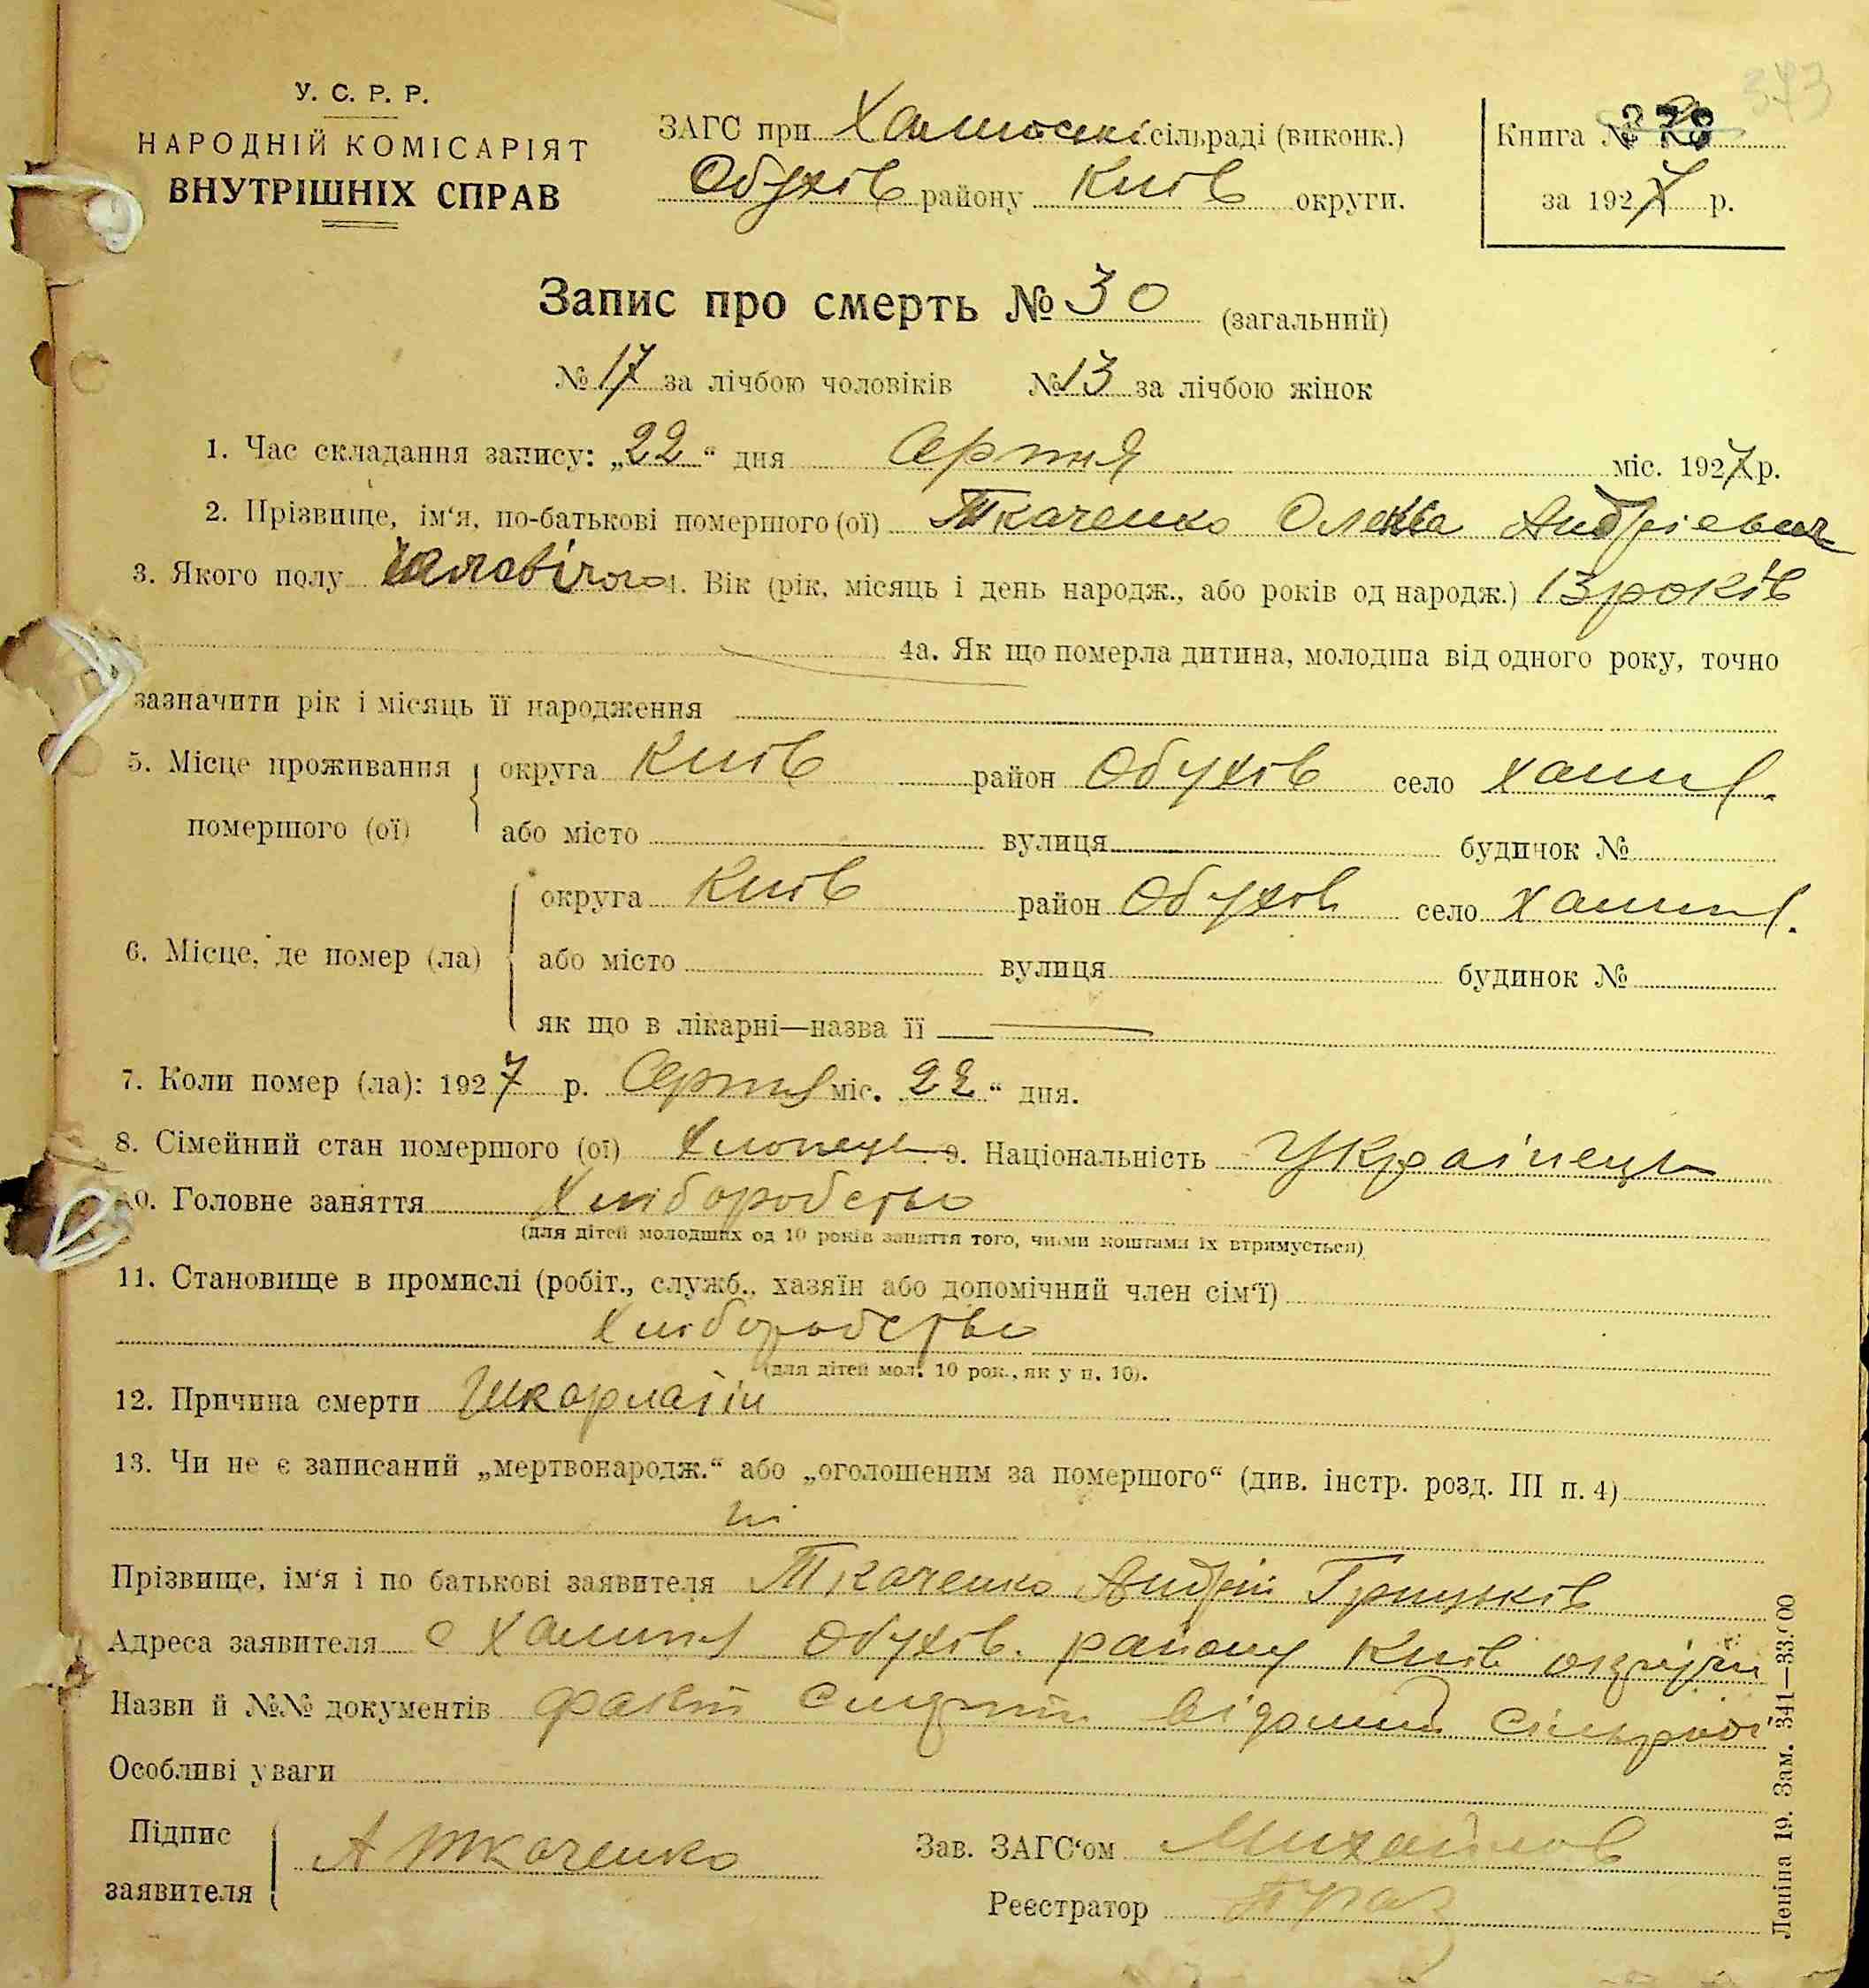 373
У. С. Р. Р.
НАРОДНІЙ КОМІСАРІЯТ
ВНУТРІШНІХ СПРАВ
ЗАГС при сільраді (виконк.)
Обухів району Київ округи.
Книга №
за 1927 р.
Запис про смерть № 30 (загальний)
№ 17 за лічбою чоловіків № 13 за лічбою жінок
1. Час складання запису: „22“ дня Серпня міс. 1927 р.
2. Прізвище, ім‘я, по-батькові помершого (ої) Ткаченко Олекса Андрієвич
3. Якого полу 4. Вік (рік, місяць і день народж., або років од народж.) 13 років
4а. Як що померла дитина, молодша від одного року, точно
зазначити рік і місяць її народження
5. Місце проживання помершого (ої)
округа Київ район Обухів село
або місто вулиця будинок №
6. Місце, де помер (ла)
округа Київ район Обухів село
або місто вулиця будинок №
як що в лікарні—назва її —
7. Коли помер (ла): 1927 р. Серпня міс. 22“ дня.
8. Сімейний стан помершого (ої) Хлопець 9. Національність Украінець
10. Головне заняття Хліборобство
(для дітей молодших од 10 років заняття того, чиїми коштами їх втримується)
11. Становище в промислі (робіт., служб., хазяїн або допомічний член сім‘ї)
Хліборобство
(для дітей мол. 10 рок., як у п. 10).
12. Причина смерти
13. Чи не є записаний „мертвонародж.“ або „оголошеним за помершого“ (див. інстр. розд. III п. 4)
ні
Прізвище, ім‘я і по батькові заявителя Ткаченко Андрій Грицьків
Адреса заявителя с Обухів. району Київ округи
Назви й №№ документів факт смерти відомий сільраді
Особливі уваги
Підпис заявителя А Ткаченко
Зав. ЗАГС‘ом Михайлов
Реєстратор
Леніна 19. Зам. 341—33.000